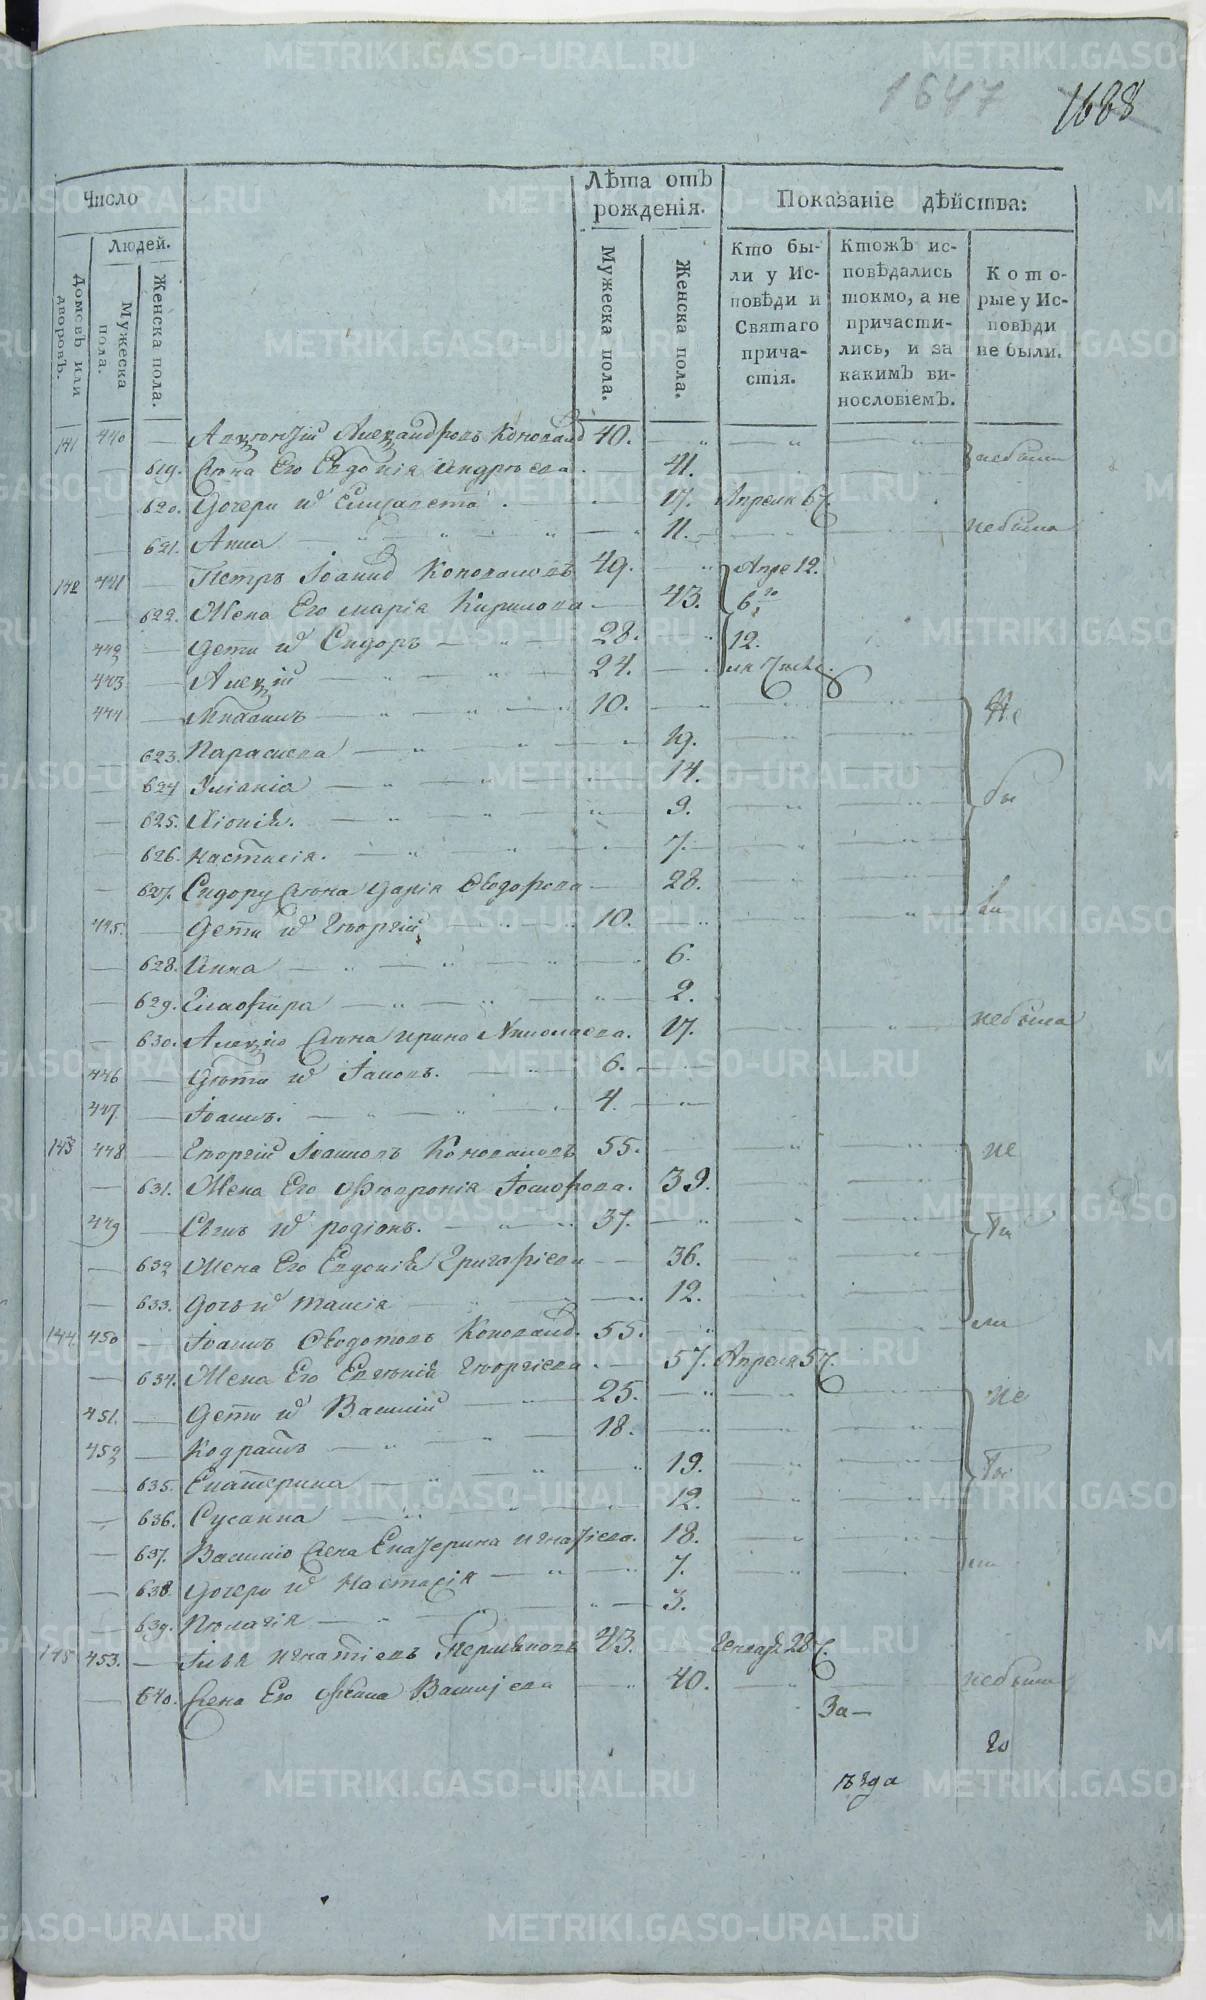 1647 1688
Число
Лѣта отъ рожденія.
Показаніе дѣйства:
Домовъ или дворовъ.
Людей.
Мужеска пола.
Женска пола.
Мужеска пола.
Женска пола.
Кто были у Исповѣди и Святаго причастія.
Ктожъ исповѣдались токмо, а не причастились, и за какимъ винословіемъ.
Которые у Исповѣди не были.
141 440 Александровъ Коновалъ 40.
619. Жена Его Евдокія Андрѣева 41. небыли
620. Дочери их Елисавета 17. Апреля 67.
621. Анна 11. небыла
142 441 Петръ Іоанновъ Коноваловъ 49. Апре 12.
622. Жена Его Марія Кирилова 43. 6
442 Дети их Сидоръ 28. 12.
443 Алексій 24.
444 10. Не
623. Параскева 19.
624 Уліанія 14.
625. Хіонія. 9. бы
626. Настасія. 7.
627. Сидору жена Дарія Ѳеодорова 28. ли
445. Дети их Георгій 10.
628. Анна 6.
629. Глафира 2.
630. Алексію жена Ирина Николаева. 17. небыла
446 Дети их Іаковъ. 6.
447 Іоаннъ. 4.
143 448 Георгій Іоанновъ Коноваловъ 55. не
631. Жена Его Февронія 39.
449 Сынъ их Родіонъ. 37. бы
632 Жена Его Евдокія Григоріева 36.
633. Дочь их Таисія 12.
144. 450 Іоаннъ Ѳеодотовъ Коновалов. 55. ли
634. Жена Его Евгенія Георгіева 57. Апреля 57.
451. Дети их Василій 25. не
452 Кодратъ 18.
635. Екатерина 19. бы
636. Сусанна 12.
637. Василію жена Екатерина Игнатіева. 18. ли
638. Дочери их Настасія 7.
639. Пелагія 3.
145 453. Илья Игнатіевъ 43. Генваря 28
640. Жена Его Васильева 40. небыла
За-
го
ѣзда
METRIKI.GASO-URAL.RU